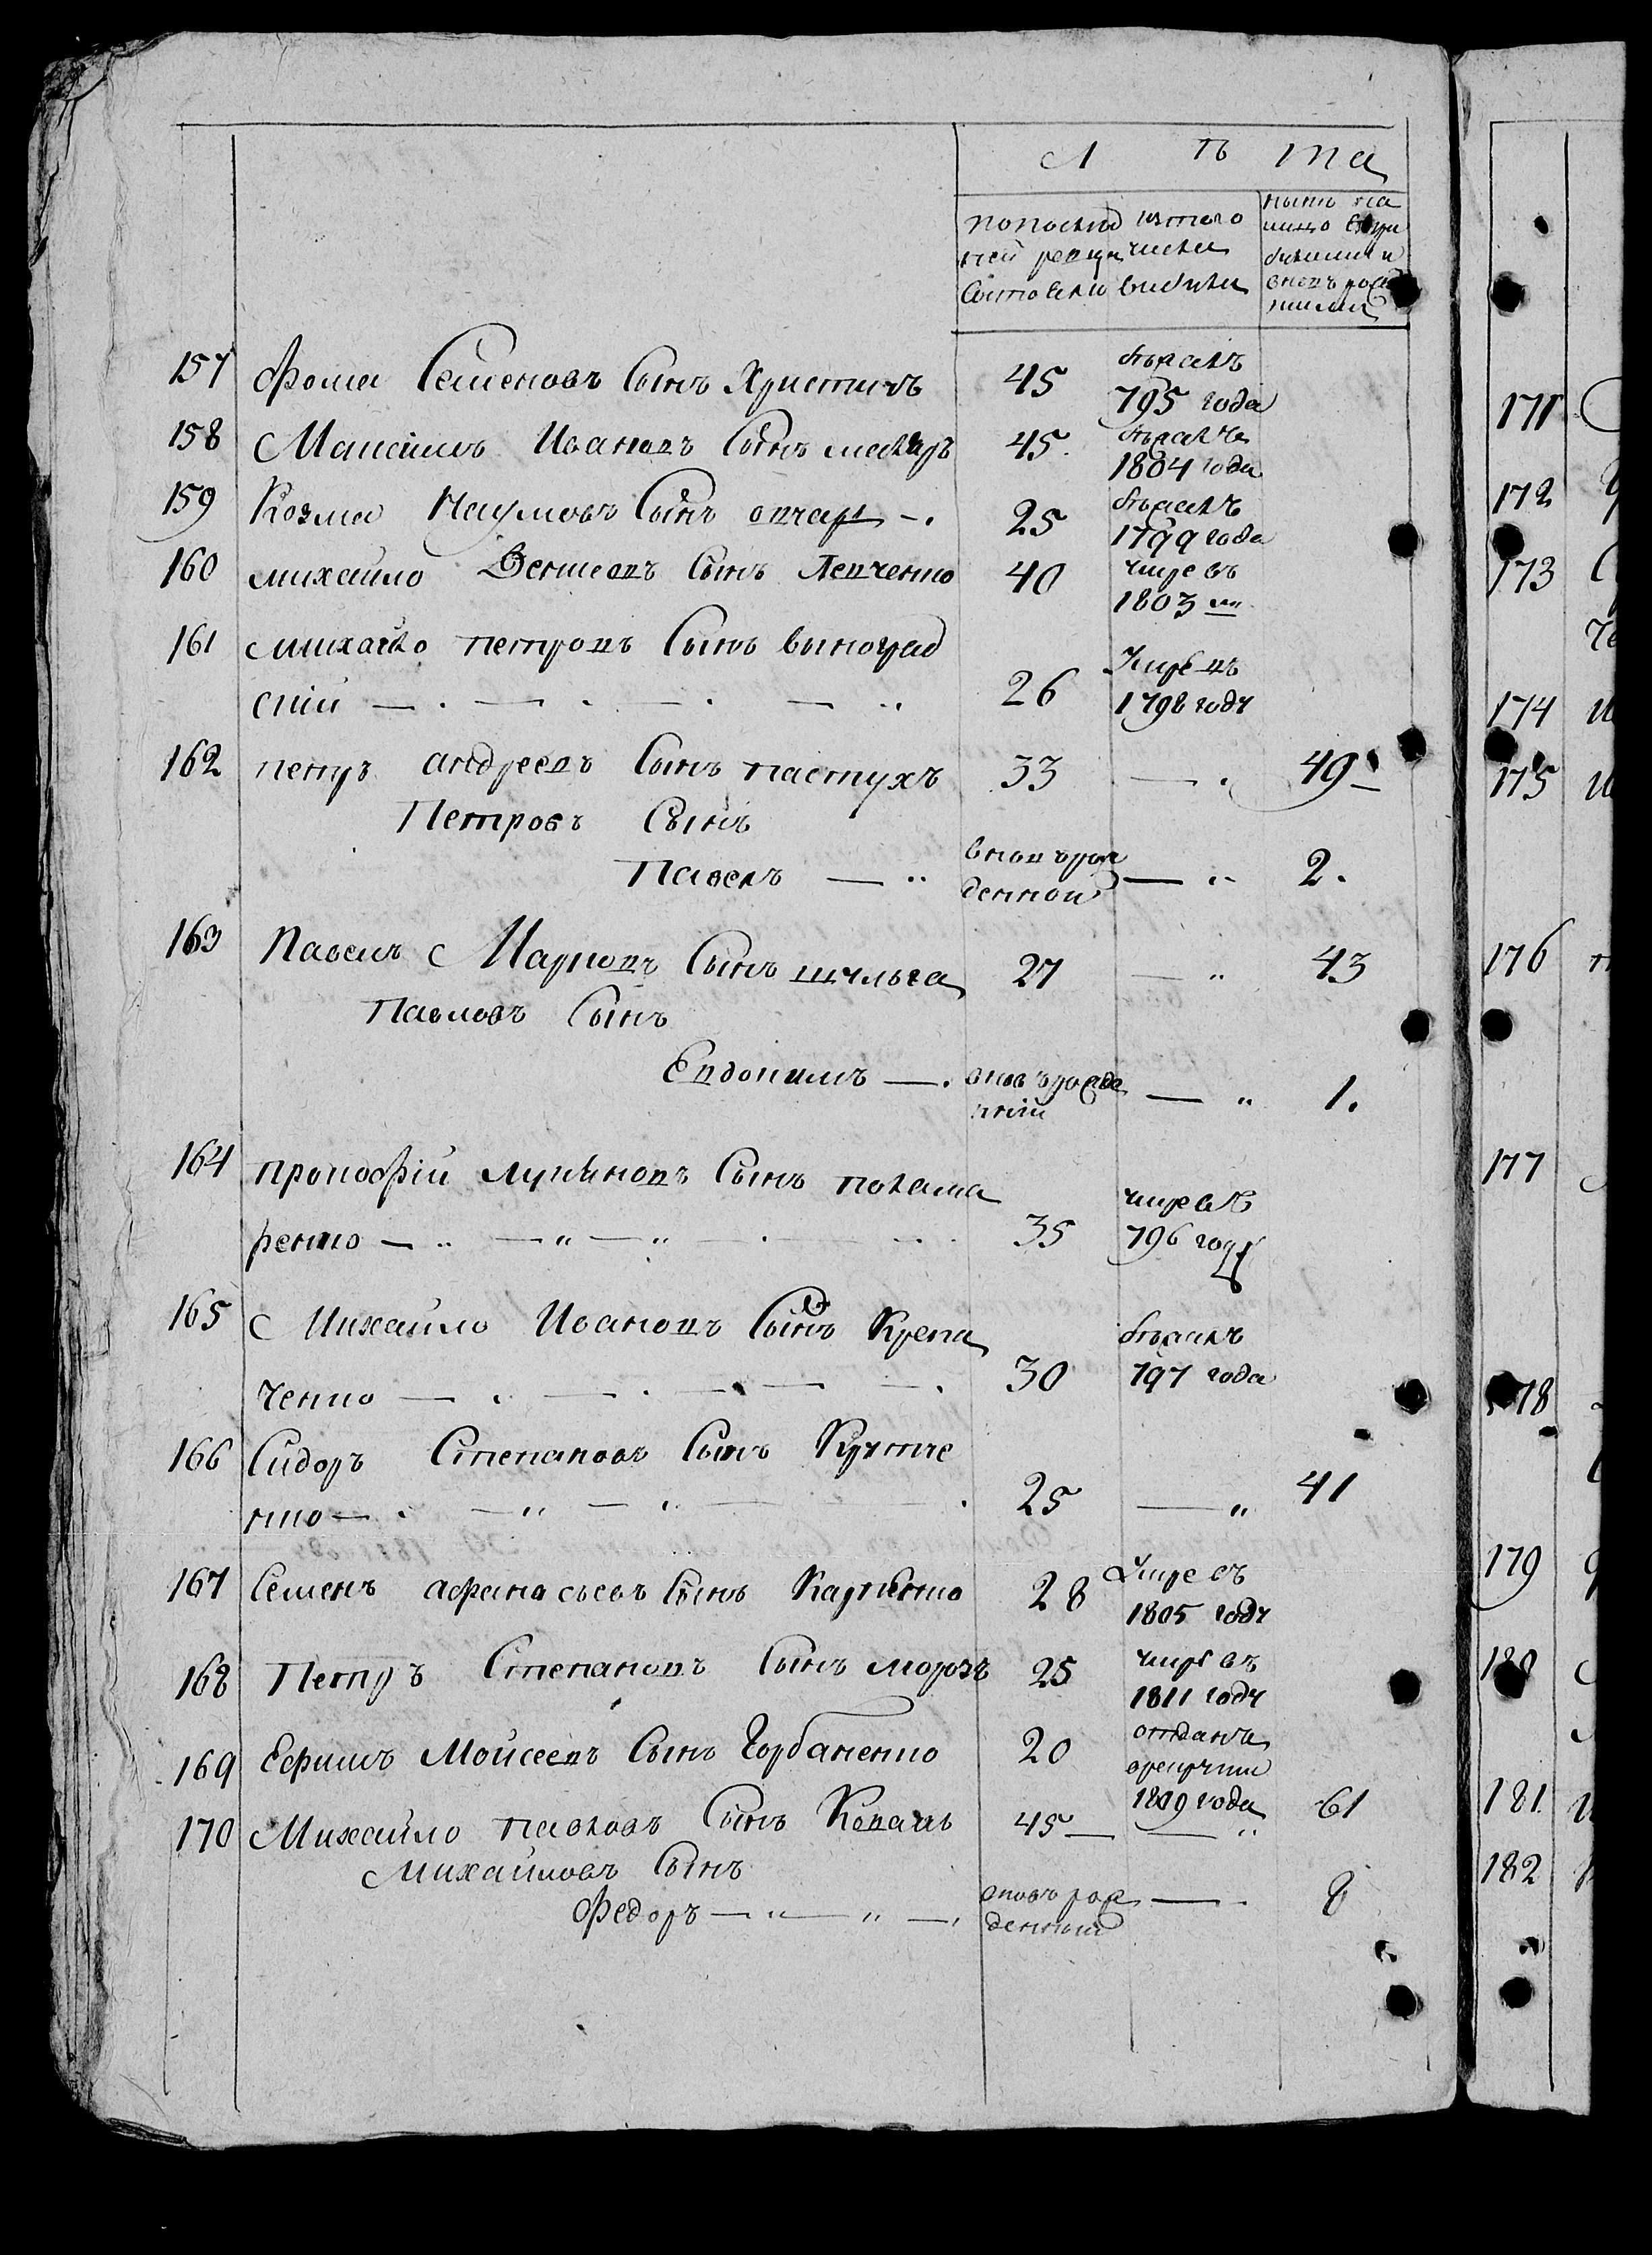 Л ѣ та
по послед изтого ныне на
ней ревизи числа лицо съ при
состояли выбыли былими и
вновь рож
шимися
157 Фома Семеновъ Сынъ Христичъ 45 бѣжалъ
795 года
158 Максимъ Ивановъ Сынъ 45. бѣжалъ
1804 года
159 Козма Наумовъ Сынъ овчаръ 25 бѣжалъ
1799 года
160 михайло Денисовъ Сынъ Левченко 40 умре въ
1803 м
161 михайло петровъ Сынъ виноград
скій 26 Умре въ
1798 году
162 петръ андреевъ Сынъ пастухъ 33 49
Петровъ Сынъ
Павелъ вновь рож
денной 2.
163 Павелъ Марковъ Сынъ шульга 27 43
Павловъ Сынъ
Евдокимъ вновь рожде
нній 1.
164 прокофій лукяновъ Сынъ понама
ренко 35 умре въ
796 году
165 Михайло Ивановъ Сынъ Крепа
ченко 30 бѣжалъ
797 года
166 Сидоръ Степановъ Сынъ Кутче
нко 25 41
167 Семенъ афанасьевъ Сынъ Карпенко 28 Умре въ
1805 году
168 Петръ Степановъ Сынъ морозъ 25 умре въ
1811 году
169 Ефимъ Мойсеевъ Сынъ Горбаненко 20 отданъ
врекруты
1809 года
170 Михайло павловъ Сынъ Коваль 45 61
Михайловъ Сынъ
Федоръ вновь рож
денный 8
171
172
173
174
175
176
177
178
179
180
181
182